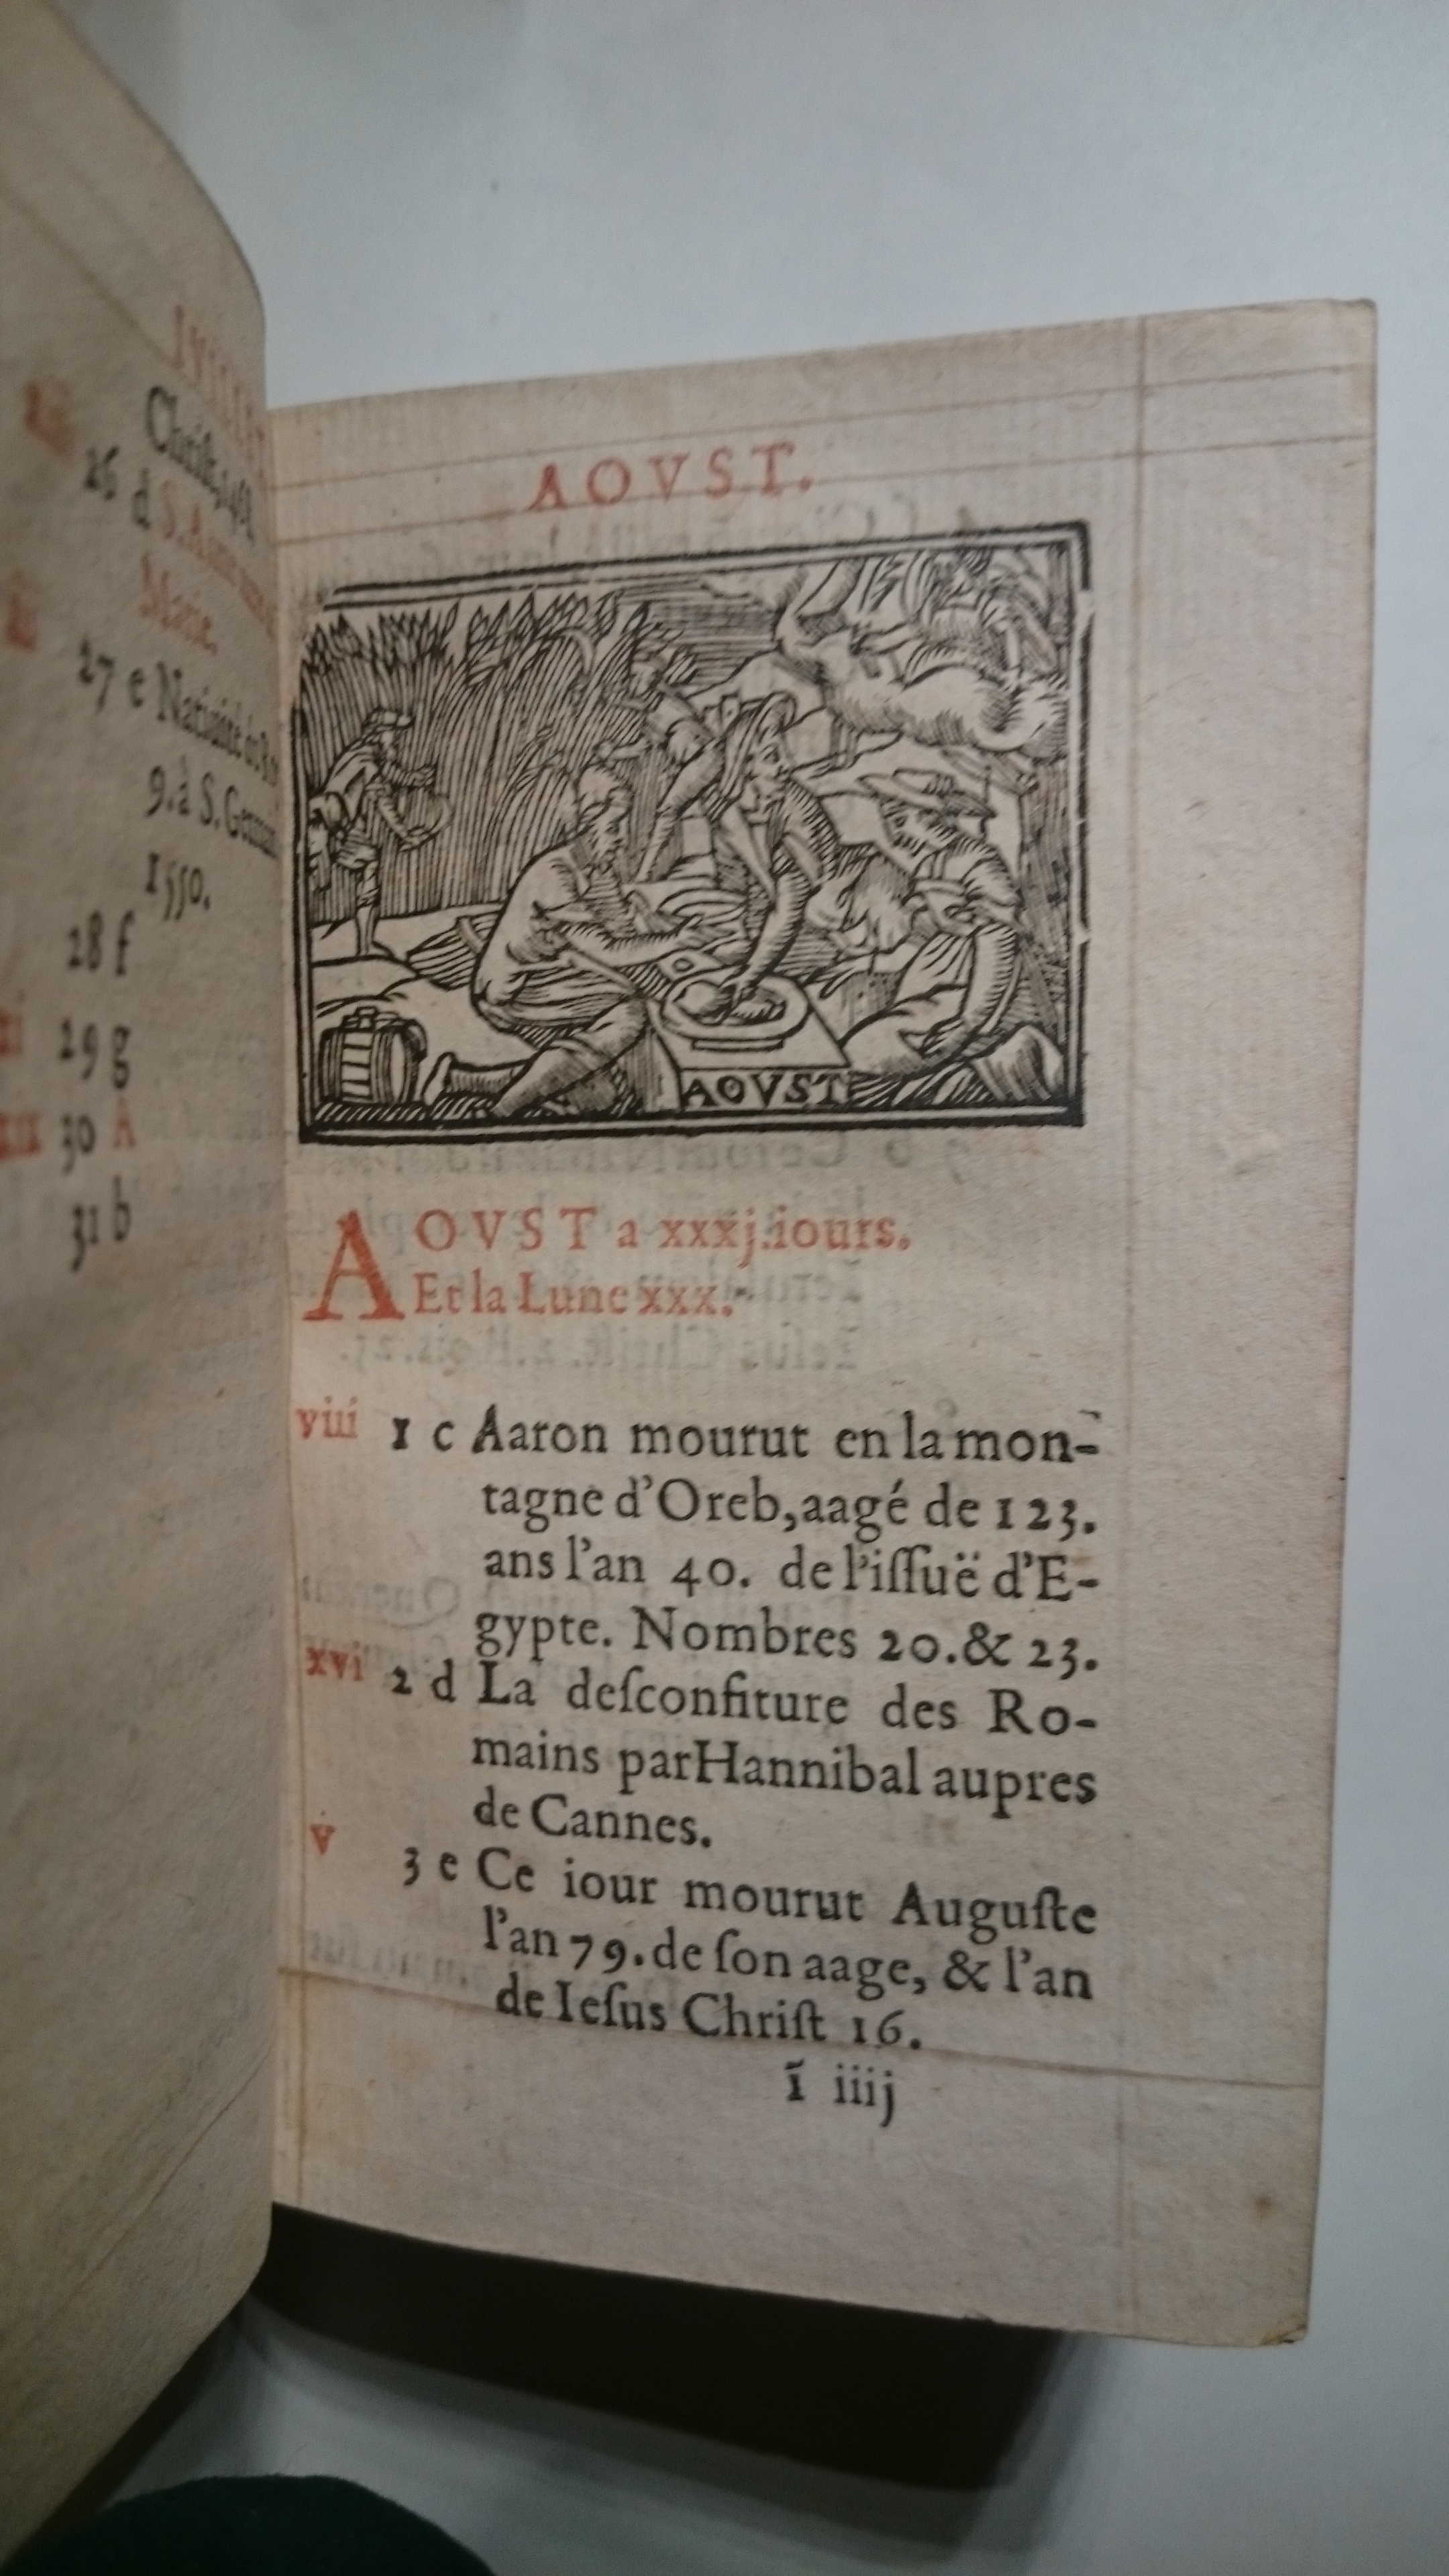 26 d
27 e
9. à S. Germ
1550.
28 f
29 g
30 A
31 b
AOVST.
AOVST
AOVST a xxxj.iours.
Et la Lune xxx.
viii 1 c Aaron mourut en la mon-
tagne d'Oreb,aagé de 123.
ans l'an 40. de l'iſſuë d'E-
gypte. Nombres 20.& 23.
xvi 2 d La deſconfiture des Ro-
mains par Hannibal aupres
de Cannes.
v 3 e Ce iour mourut Auguſte
l'an 79.de ſon aage, & l'an
de Ieſus Chriſt 16.
ĩ iiij